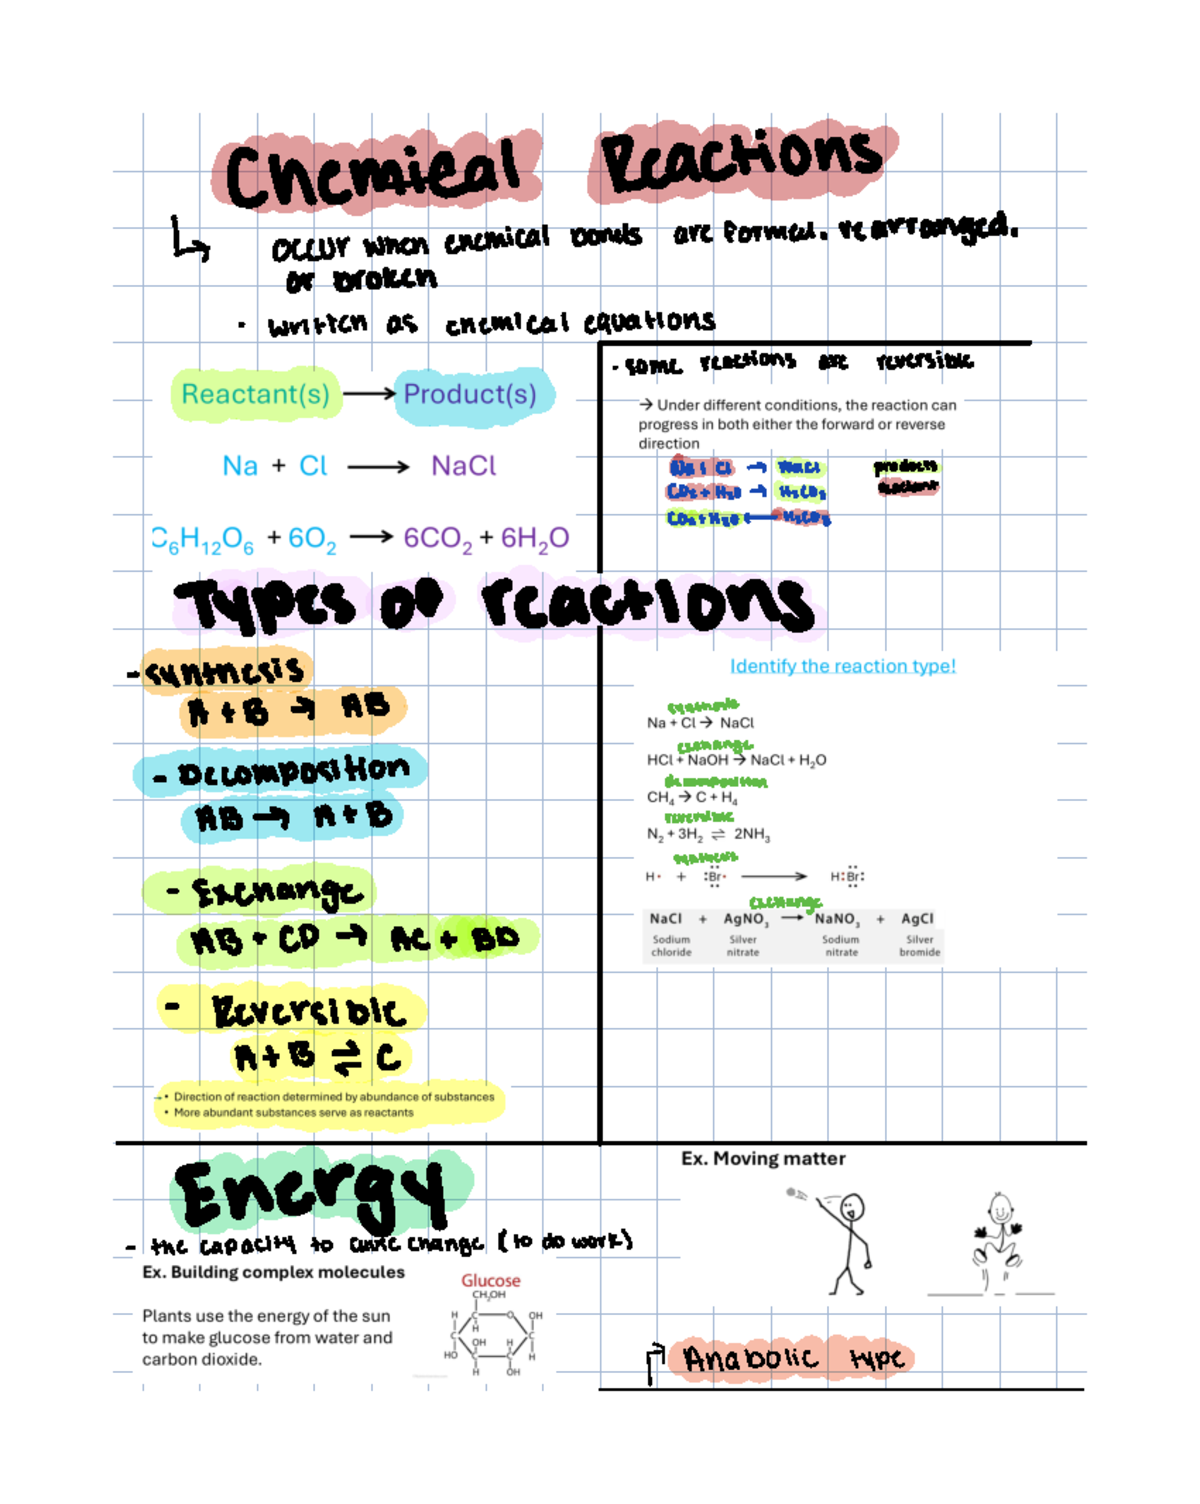 Chemical Reactions
↳ occur when chemical bonds are formed, rearranged,
or broken
· written as chemical equations
Reactant(s) → Product(s)
Na + Cl → NaCl
C₆H₁₂O₆ + 6O₂ → 6CO₂ + 6H₂O
· some reactions are reversible
→ Under different conditions, the reaction can
progress in both either the forward or reverse
direction
Na + Cl → NaCl products
CO₂ + H₂O → H₂CO₃ reactant
CO₂ + H₂O ← H₂CO₃
Types of reactions
- synthesis
A + B → AB
- Decomposition
AB → A + B
- Exchange
AB + CD → AC + BD
- Reversible
A + B ⇌ C
→ • Direction of reaction determined by abundance of substances
• More abundant substances serve as reactants
Identify the reaction type!
synthesis
Na + Cl → NaCl
exchange
HCl + NaOH → NaCl + H₂O
decomposition
CH₄ → C + H₄
reversible
N₂ + 3H₂ ⇌ 2NH₃
synthesis
H· + :Br· → H:Br:
exchange
NaCl + AgNO₃ → NaNO₃ + AgCl
Sodium chloride Silver nitrate Sodium nitrate Silver bromide
Energy
- the capacity to cause change (to do work)
Ex. Building complex molecules
Plants use the energy of the sun
to make glucose from water and
carbon dioxide.
Glucose
CH₂OH
H C O OH
C H C
OH H
HO C C H
H OH
Ex. Moving matter
Anabolic type